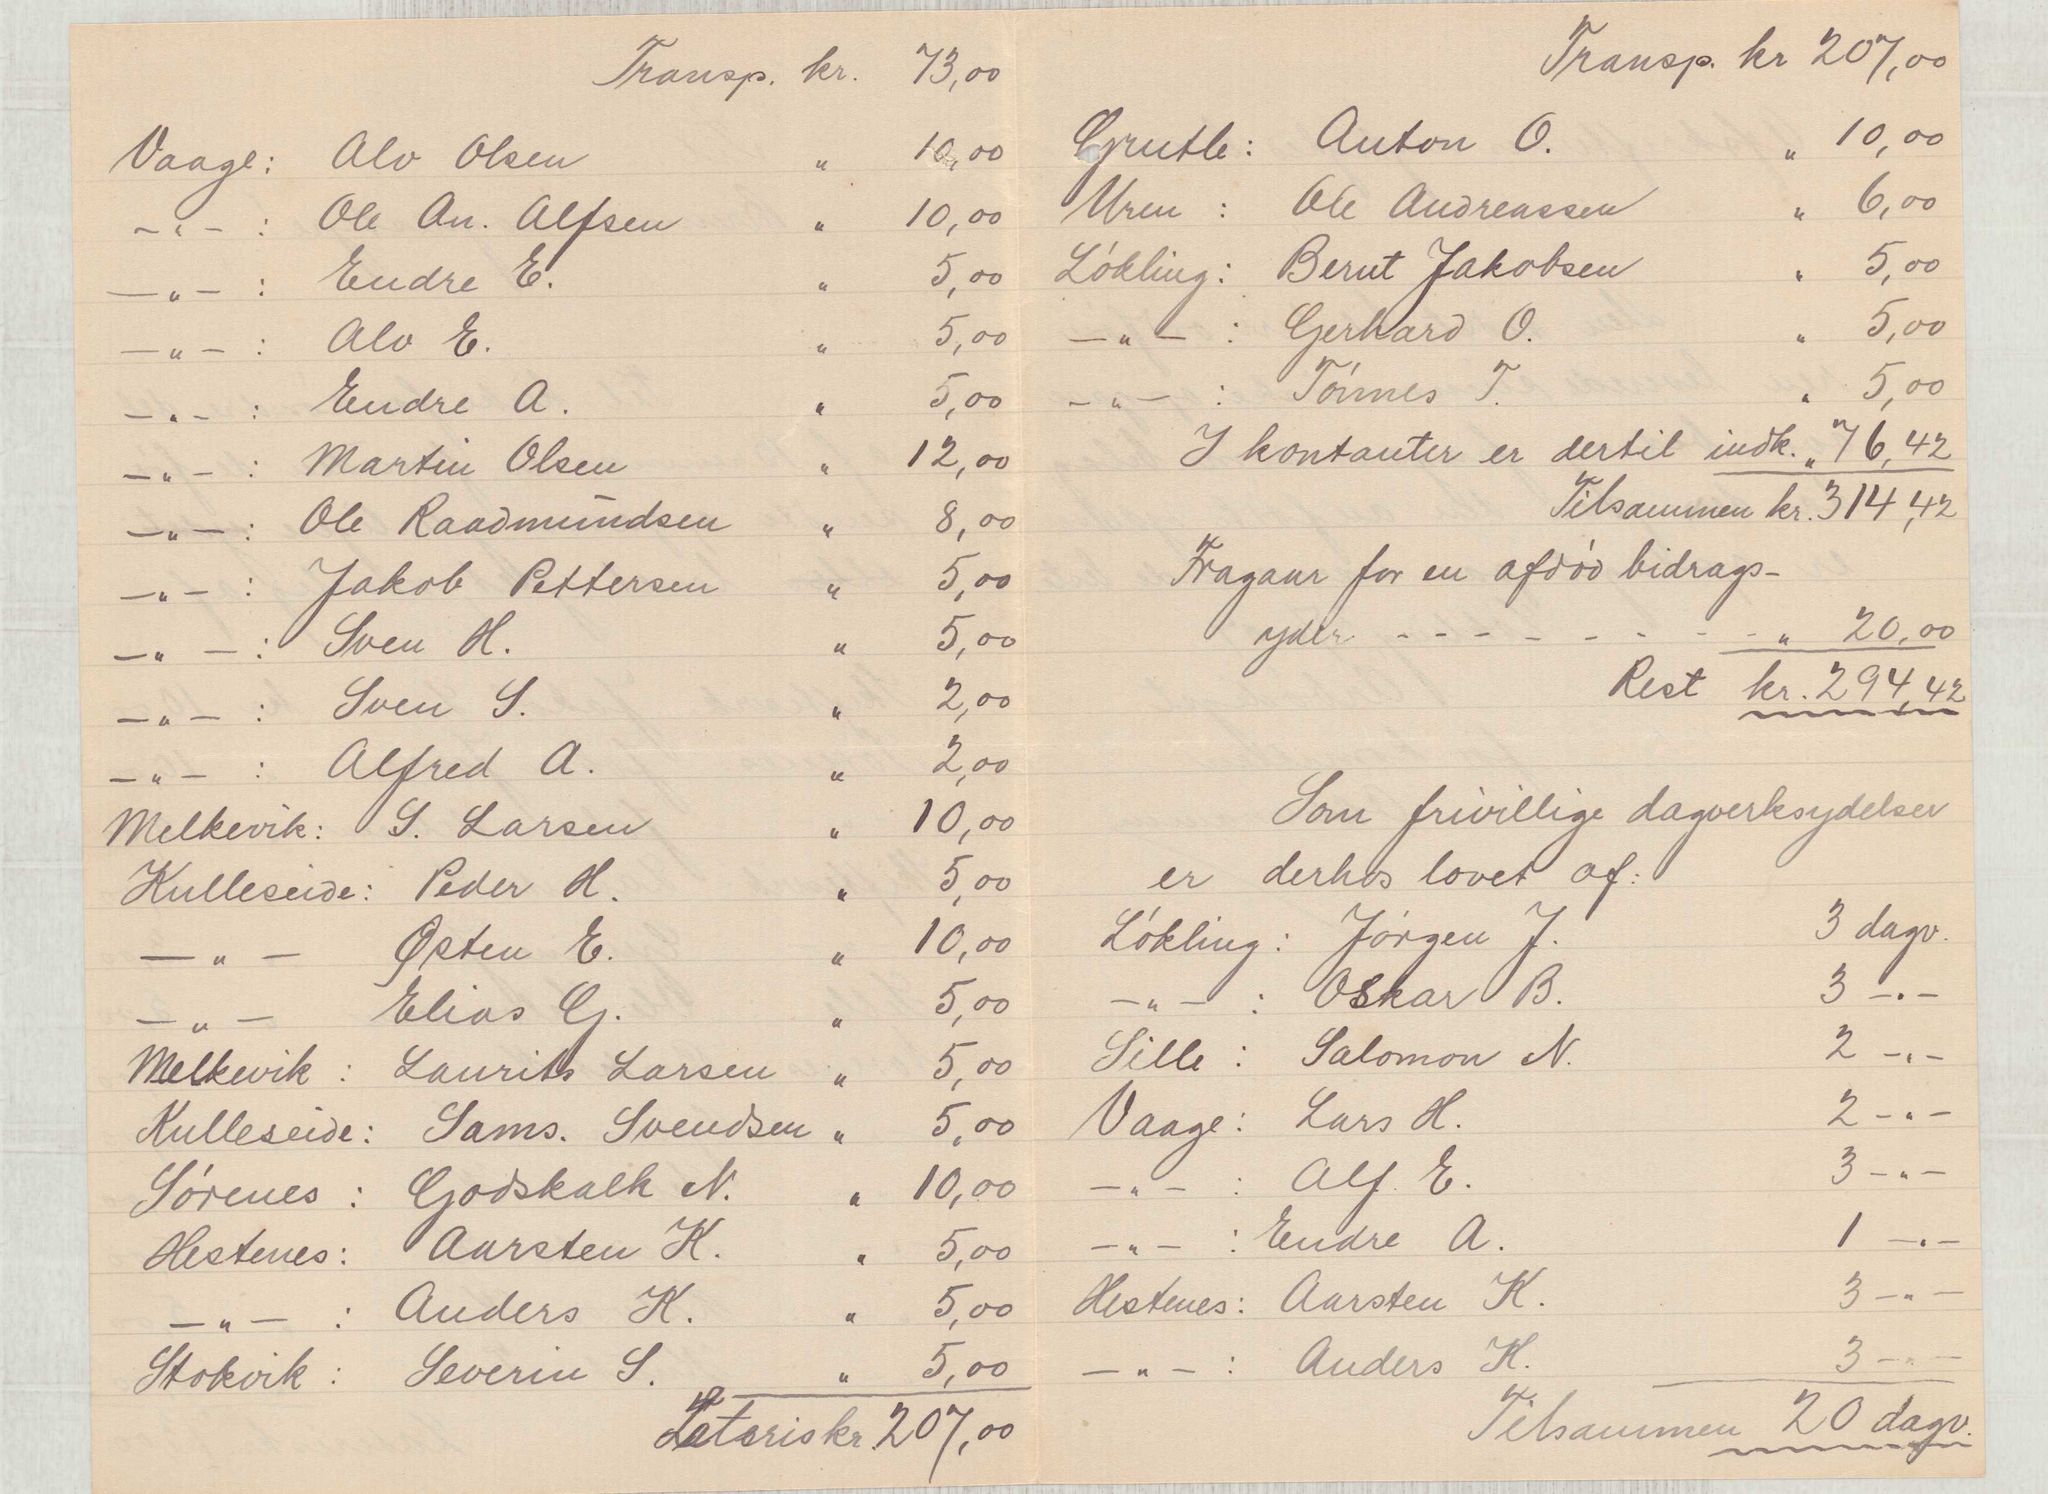 Transp. kr. 73,00
Vaage: Alv Olsen " 10,00
-"- : Ole An. Alfsen " 10,00
-"- : Endre E. " 5,00
-"- : Alv E. " 5,00
-"- : Endre A. " 5,00
-"- : Martin Olsen " 12,00
-"- : Ole Raadmundsen " 8,00
-"- : Jakob Pettersen " 5,00
-"- : Sven H. " 5,00
-"- : Sven S. " 2,00
-"- : Alfred A. " 2,00
Melkevik: S. Larsen " 10,00
Kulleseide: Peder H. " 5,00
-"- Østen E. " 10,00
-"- Elias G. " 5,00
Melkevik : Laurits Larsen " 5,00
Kulleseide: Sams. Svendsen " 5,00
Sørenes : Godskalk N. " 10,00
Hestenes: Aarsten K. " 5,00
-"- : Anders K. " 5,00
Stokvik : Severin S. " 5,00
Lateris kr. 207,00
Transp. kr 207,00
Grutle: Anton O. " 10,00
Uren : Ole Andreassen " 6,00
Løkling: Bernt Jakobsen " 5,00
-"- : Gerhard O. " 5,00
-"- : Tønnes T. " 5,00
I kontanter er dertil indk. " 76,42
Tilsammen kr. 314,42
Fragaar for en afdød bidrags-
yder - - - - - - - - - " 20,00
Rest kr. 294,42
Som frivillige dagverksydelser
er derhos lovet af:
Løkling: Jørgen J. 3 dagv.
-"- : Oskar B. 3 -"-
Sille : Salomon N. 2 -"-
Vaage: Lars H. 2 -"-
-"- : Alf E. 3 -"-
-"- : Endre A. 1 -"-
Hestenes: Aarsten K. 3 -"-
-"- : Anders K. 3 -"-
Tilsammen 20 dagv.